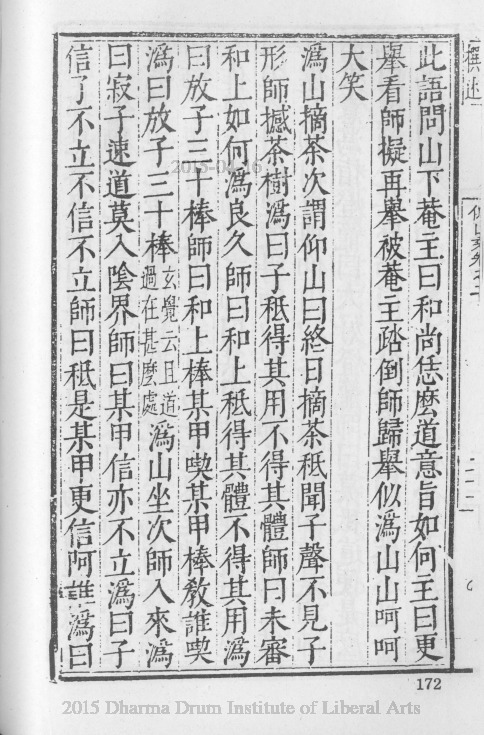 此語問山下菴主曰和尚恁麼道意旨如何主曰更
舉看師擬再舉被菴主踏倒師歸舉似溈山山呵呵
大笑
溈山摘茶次謂仰山曰終日摘茶秪聞子聲不見子
形師撼茶樹溈曰子秪得其用不得其體師曰未審
和上如何溈良久師曰和上秪得其體不得其用溈
曰放子三十棒師曰和上棒某甲喫某甲棒教誰喫
溈曰放子三十棒玄覺云且道過在甚麼處溈山坐次師入來溈
曰寂子速道莫入陰界師曰某甲信亦不立溈曰子
信了不立不信不立師曰秪是某甲更信阿誰溈曰
172
2015 Dharma Drum Institute of Liberal Arts